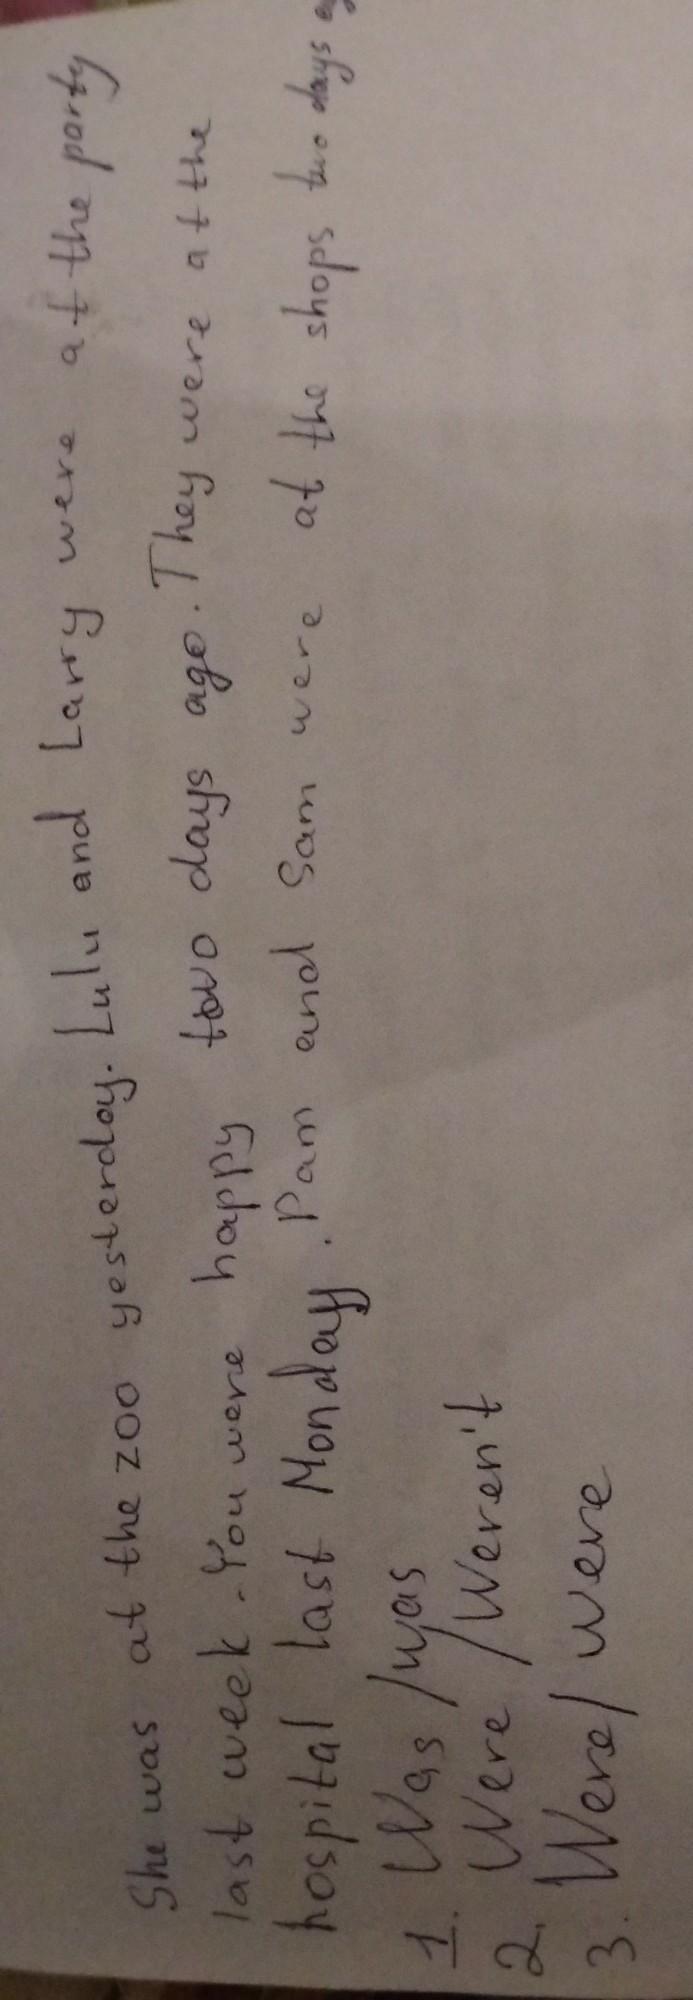 She was at the zoo yesterday. Lulu and Larry were at the party
last week. You were happy two days ago. They were at the
hospital last Monday. Pam and Sam were at the shops two days
1. Was / was
2. Were / Weren't
3. Were / were